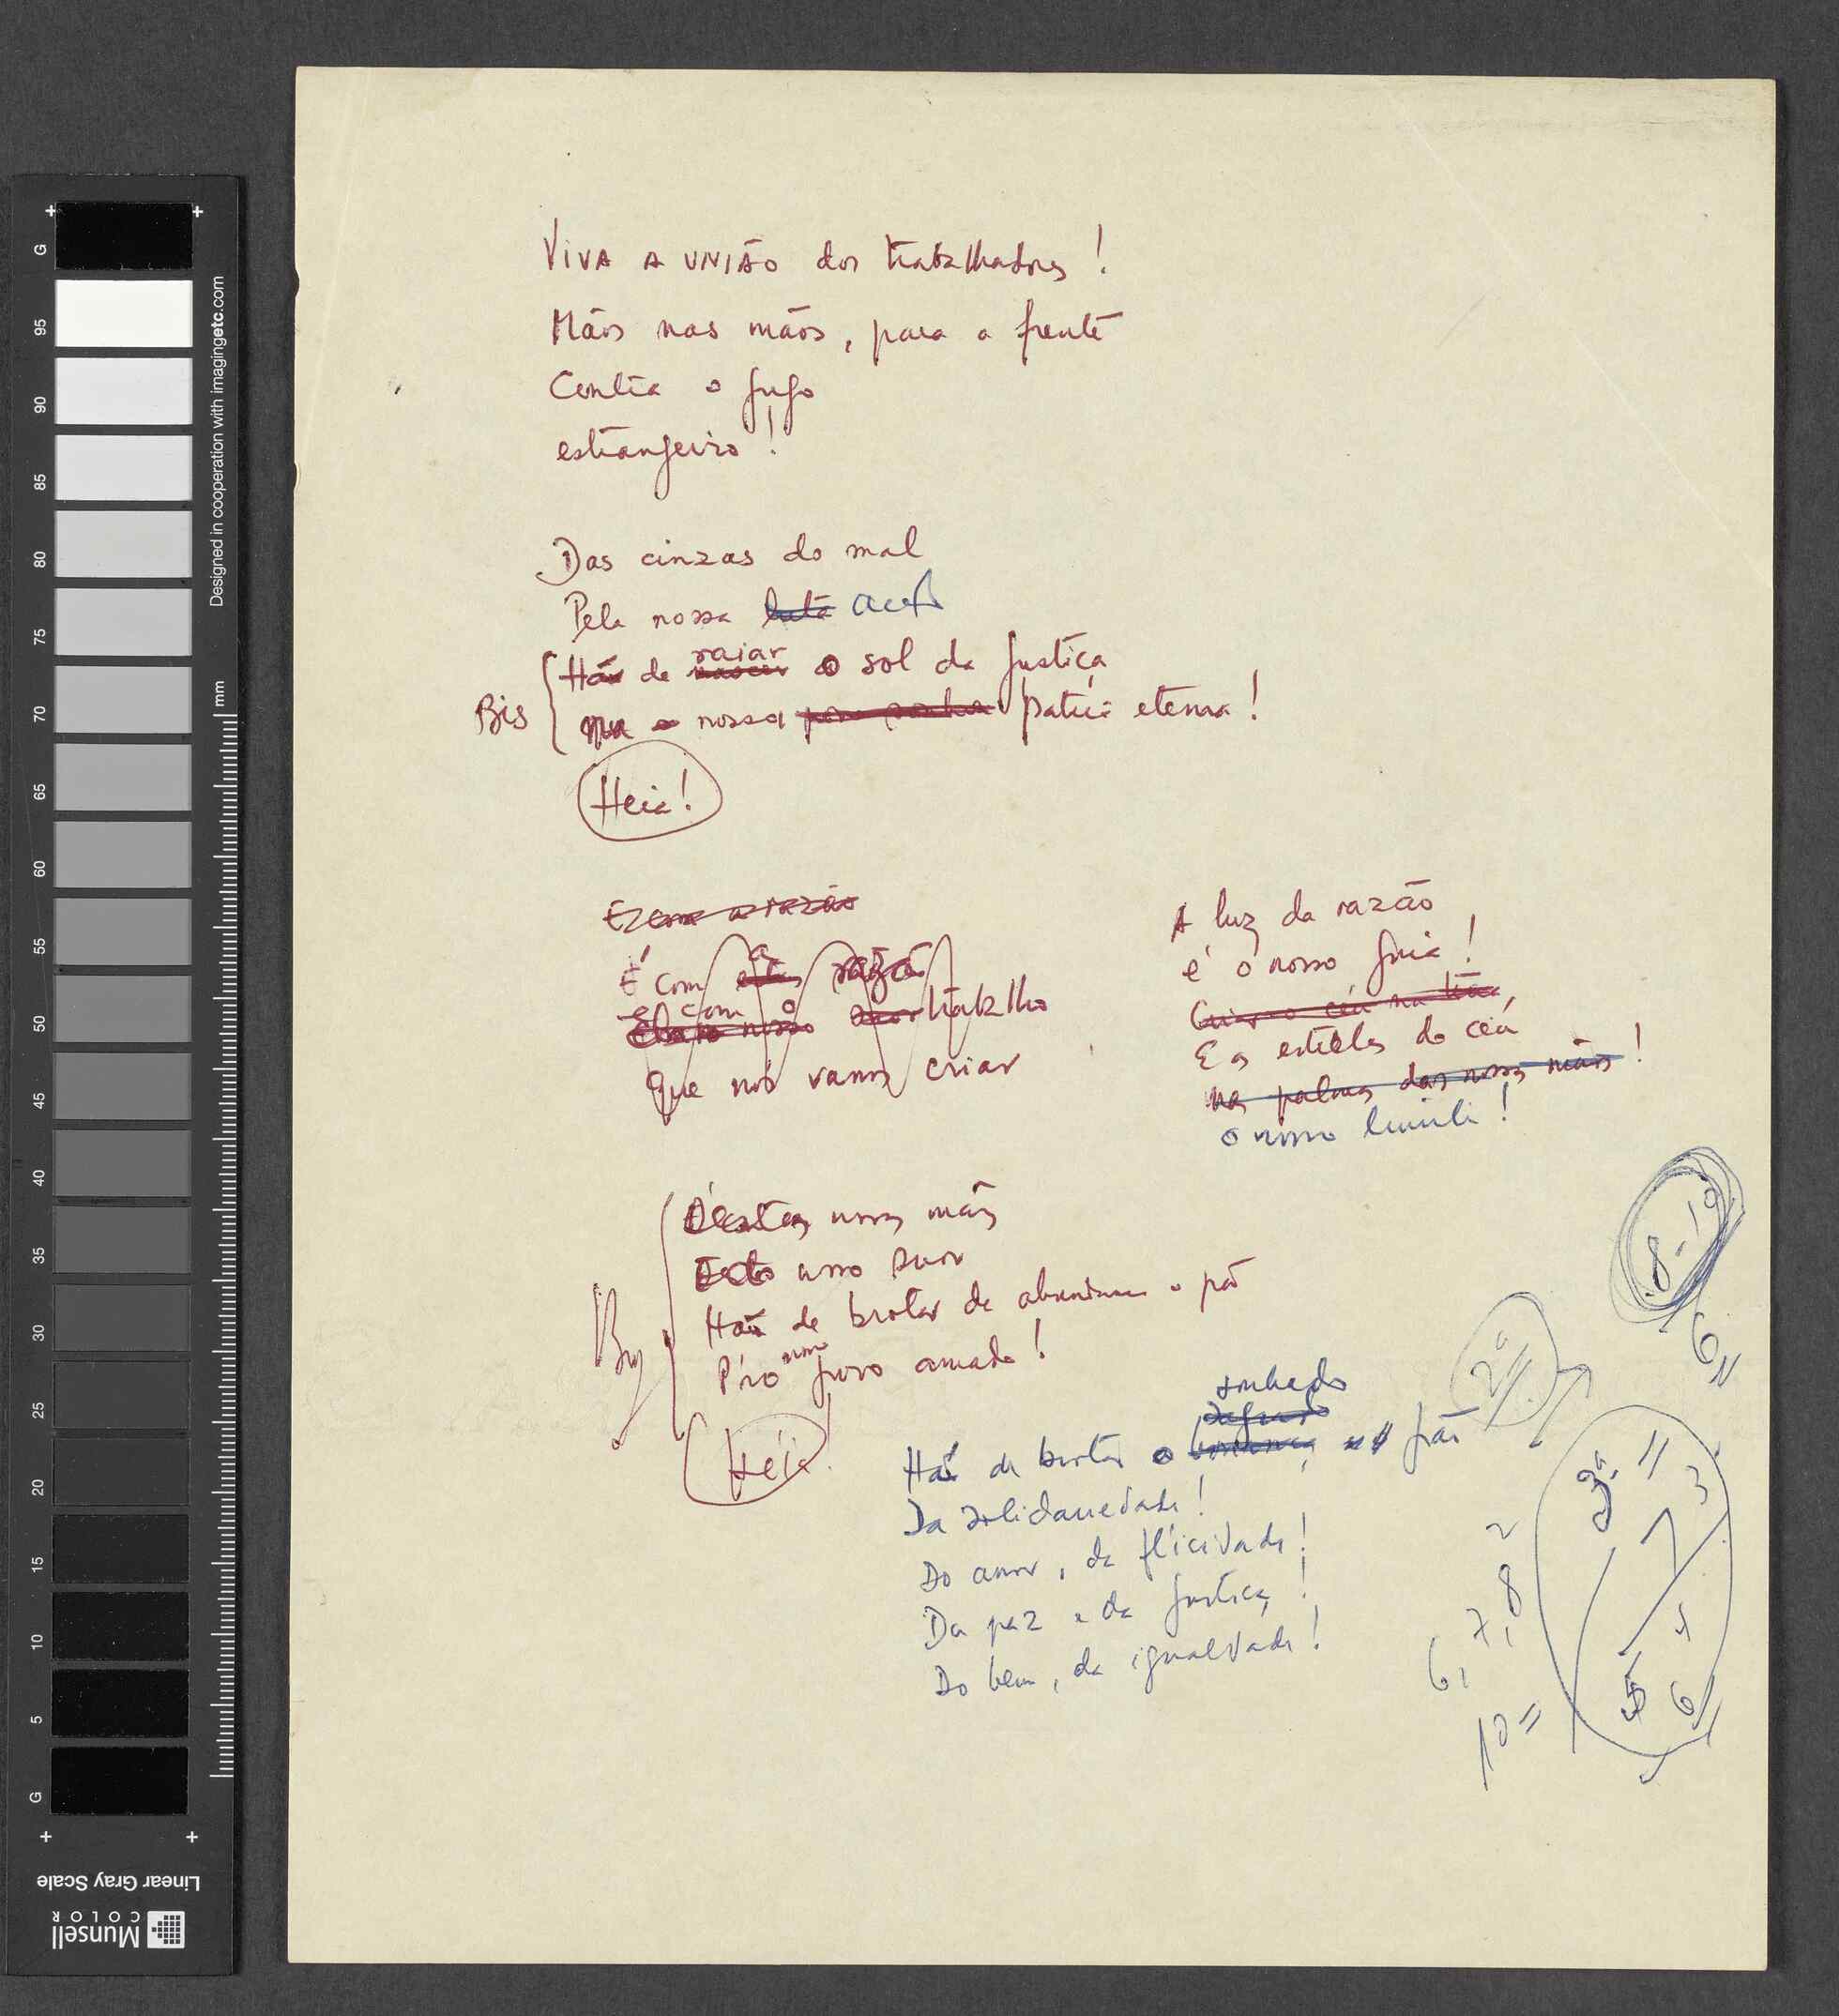 Viva a União dos trabalhadores!
Mãos nas mãos, para a frente
Contra o jugo
estrangeiro!
Das cinzas do mal
Pela nossa luta acção
raiar
Há de nascer o sol da justiça
Bis
na nossa pátria eterna!
Heia!
E com a razão
A luz da razão
É com a razão
é o nosso guia!
e com o trabalho
Que nós vamos criar
E as estrelas do céu
na palma das nossas mãos!
o nosso limite!
Destas nossas mãos
nosso suor
Há de brotar da abundancia o pão
Bis
P'ro nosso povo amado!
Héia!
sonhado
Há de brotar o pão
Da solidariedade!
Do amor, da felicidade!
Da paz e da justiça!
Do bem, da igualdade!
8-10
6
2ª
3ª
2
6, 7, 8
5 6
10
G
95
90
85
80
75
70
65
60
55
50
45
40
35
30
25
20
15
10
5
G
mm
Designed in cooperation with imagingetc.com
Linear Gray Scale
Munsell
COLOR